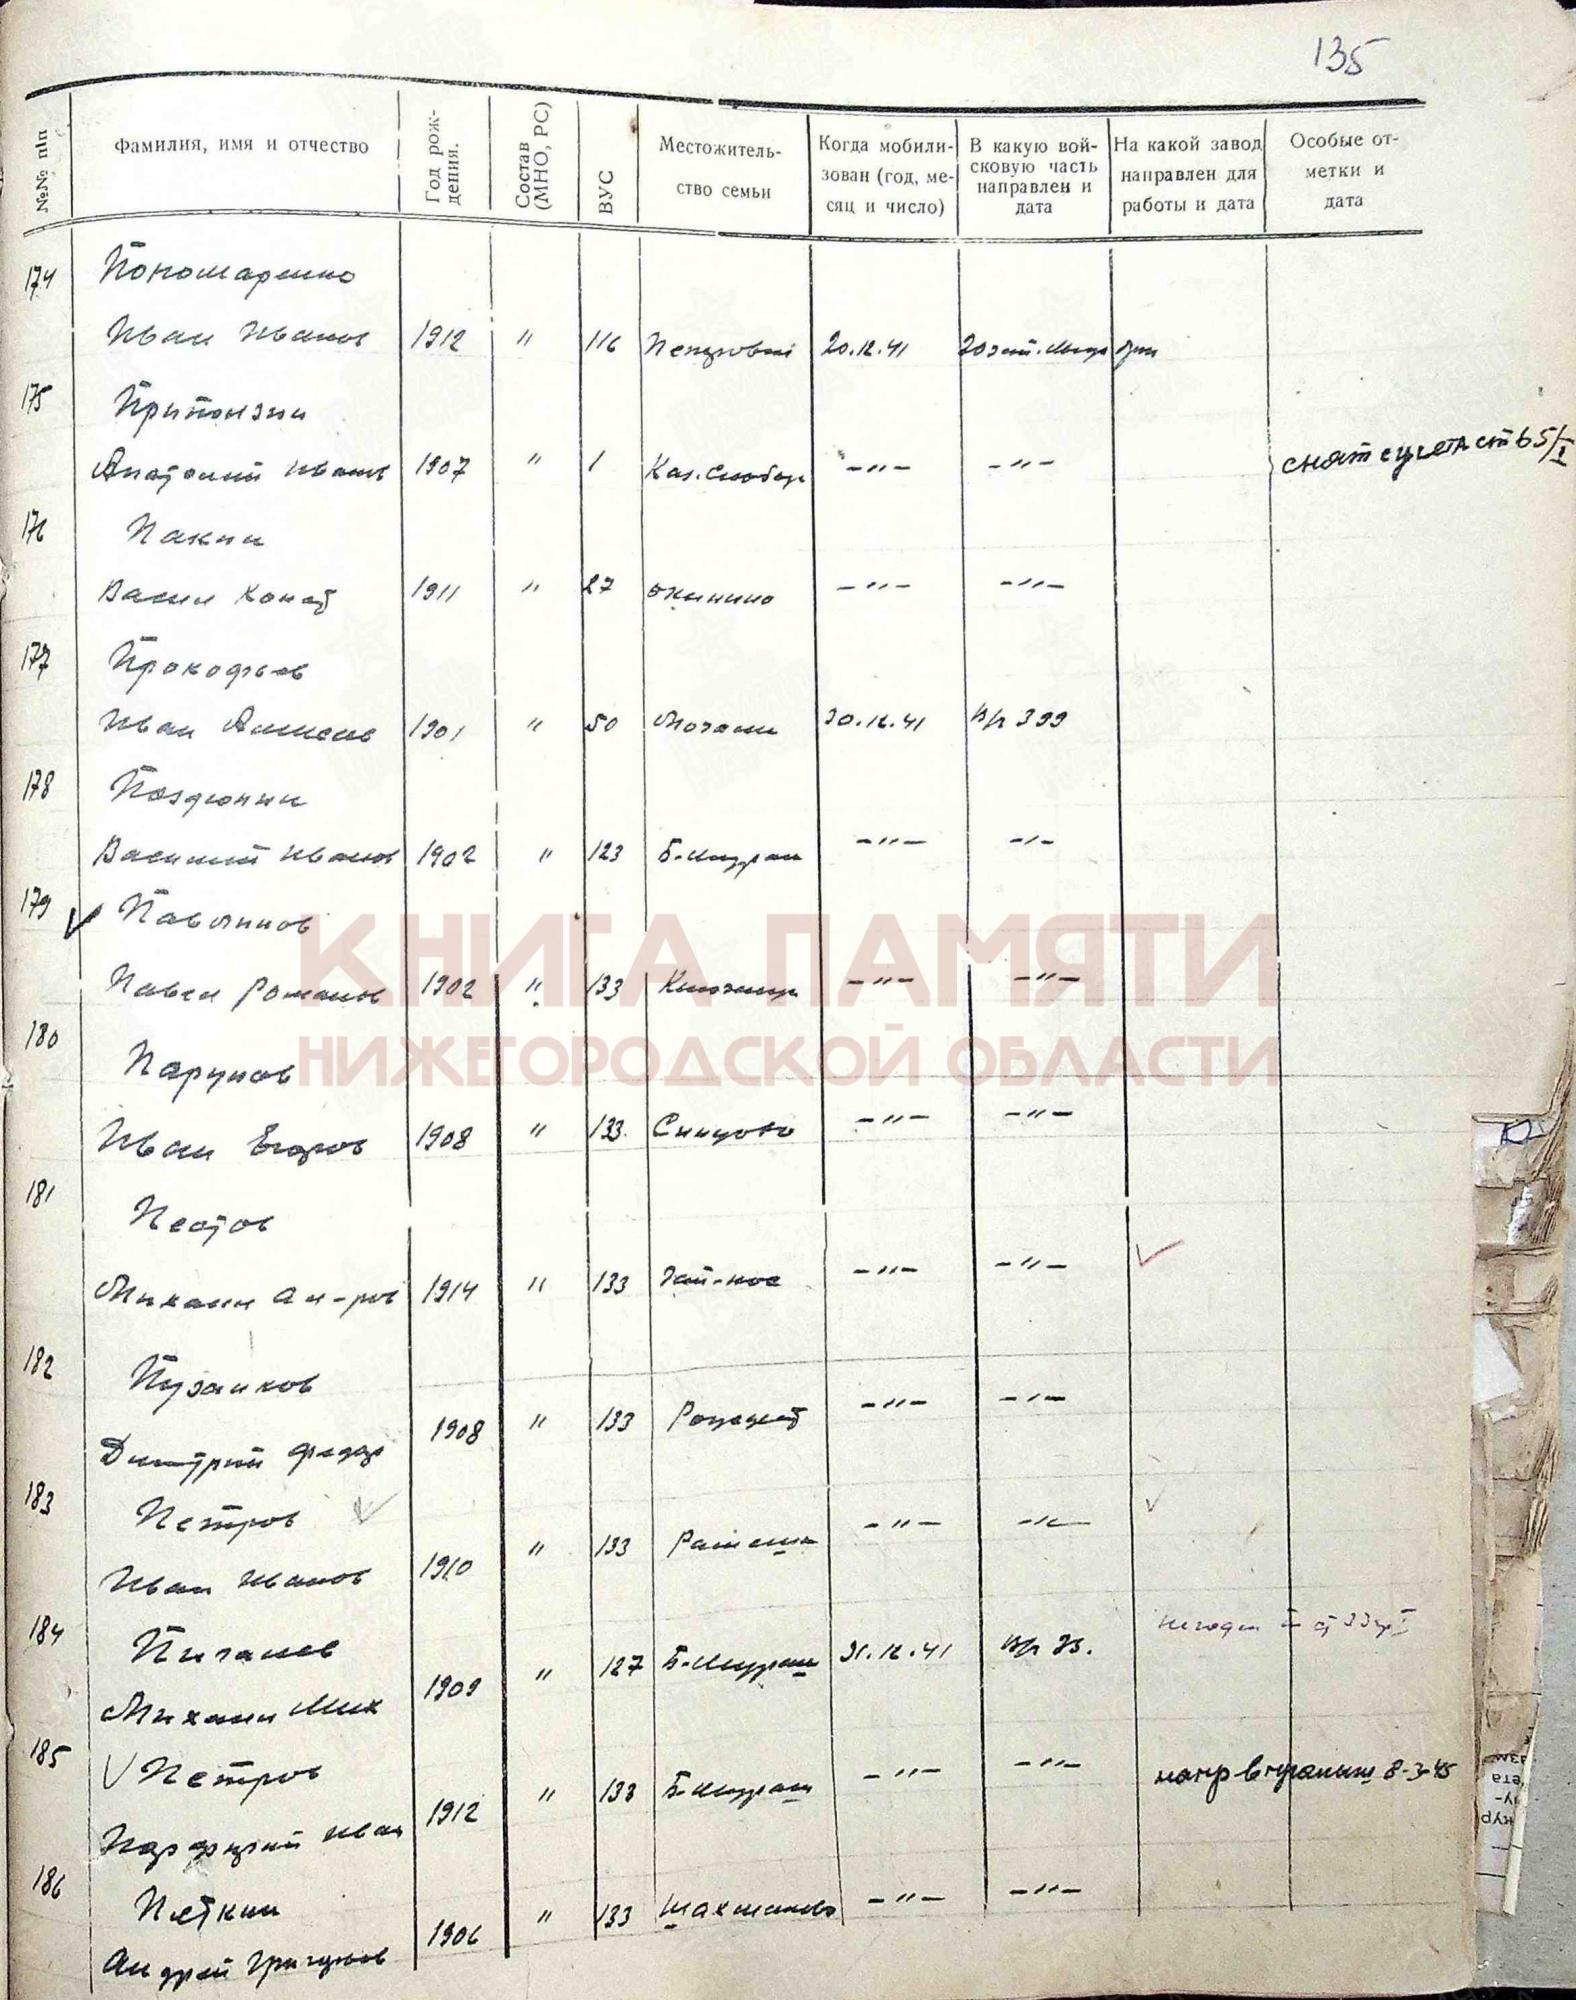 135
№№ п|п
Фамилия, имя и отчество
Год рож-
дения.
Состав
(МНО, РС)
ВУС
Местожитель-
ство семьи
Когда мобили-
зован (год, ме-
сяц и число)
В какую вой-
сковую часть
направлен и
дата
На какой завод
направлен для
работы и дата
Особые от-
метки и
дата
174 Пономаренко
Иван Иванов 1912 " 116 20.12.41
175
Анатолий Иванов 1907 " 1 Каз. Слобод -"- -"- снят с учета ст 65/I
176 Пакин
Васил 1911 " 27 окинино -"- -"-
177 Прокофьев
Иван Алексеев 1901 " 50 30.12.41 В/ч 399
178 Поздюнин
Василий Иванов 1902 " 123 Б-Мураш -"- -"-
179 Павлинов
Павел Романов 1902 " 133 -"- -"-
180 Парунов
Иван Егоров 1908 " 133 -"- -"-
181
Михаил 1914 " 133 -"- -"-
182 Пузанков
Дмитрий Федор 1908 " 133 -"- -"-
183 Петров
Иван Иванов 1910 " 133 -"- -"-
184
Михаил Мих 1909 " 127 Б-Мураш 31.12.41
185 Петров
Порфирий Иван 1912 " 133 Б-Мураш -"- -"- 8-3-45
186 Пяткин
Андрей Григорьев 1906 " 133 Шахманово -"- -"-
КНИГА ПАМЯТИ
НИЖЕГОРОДСКОЙ ОБЛАСТИ